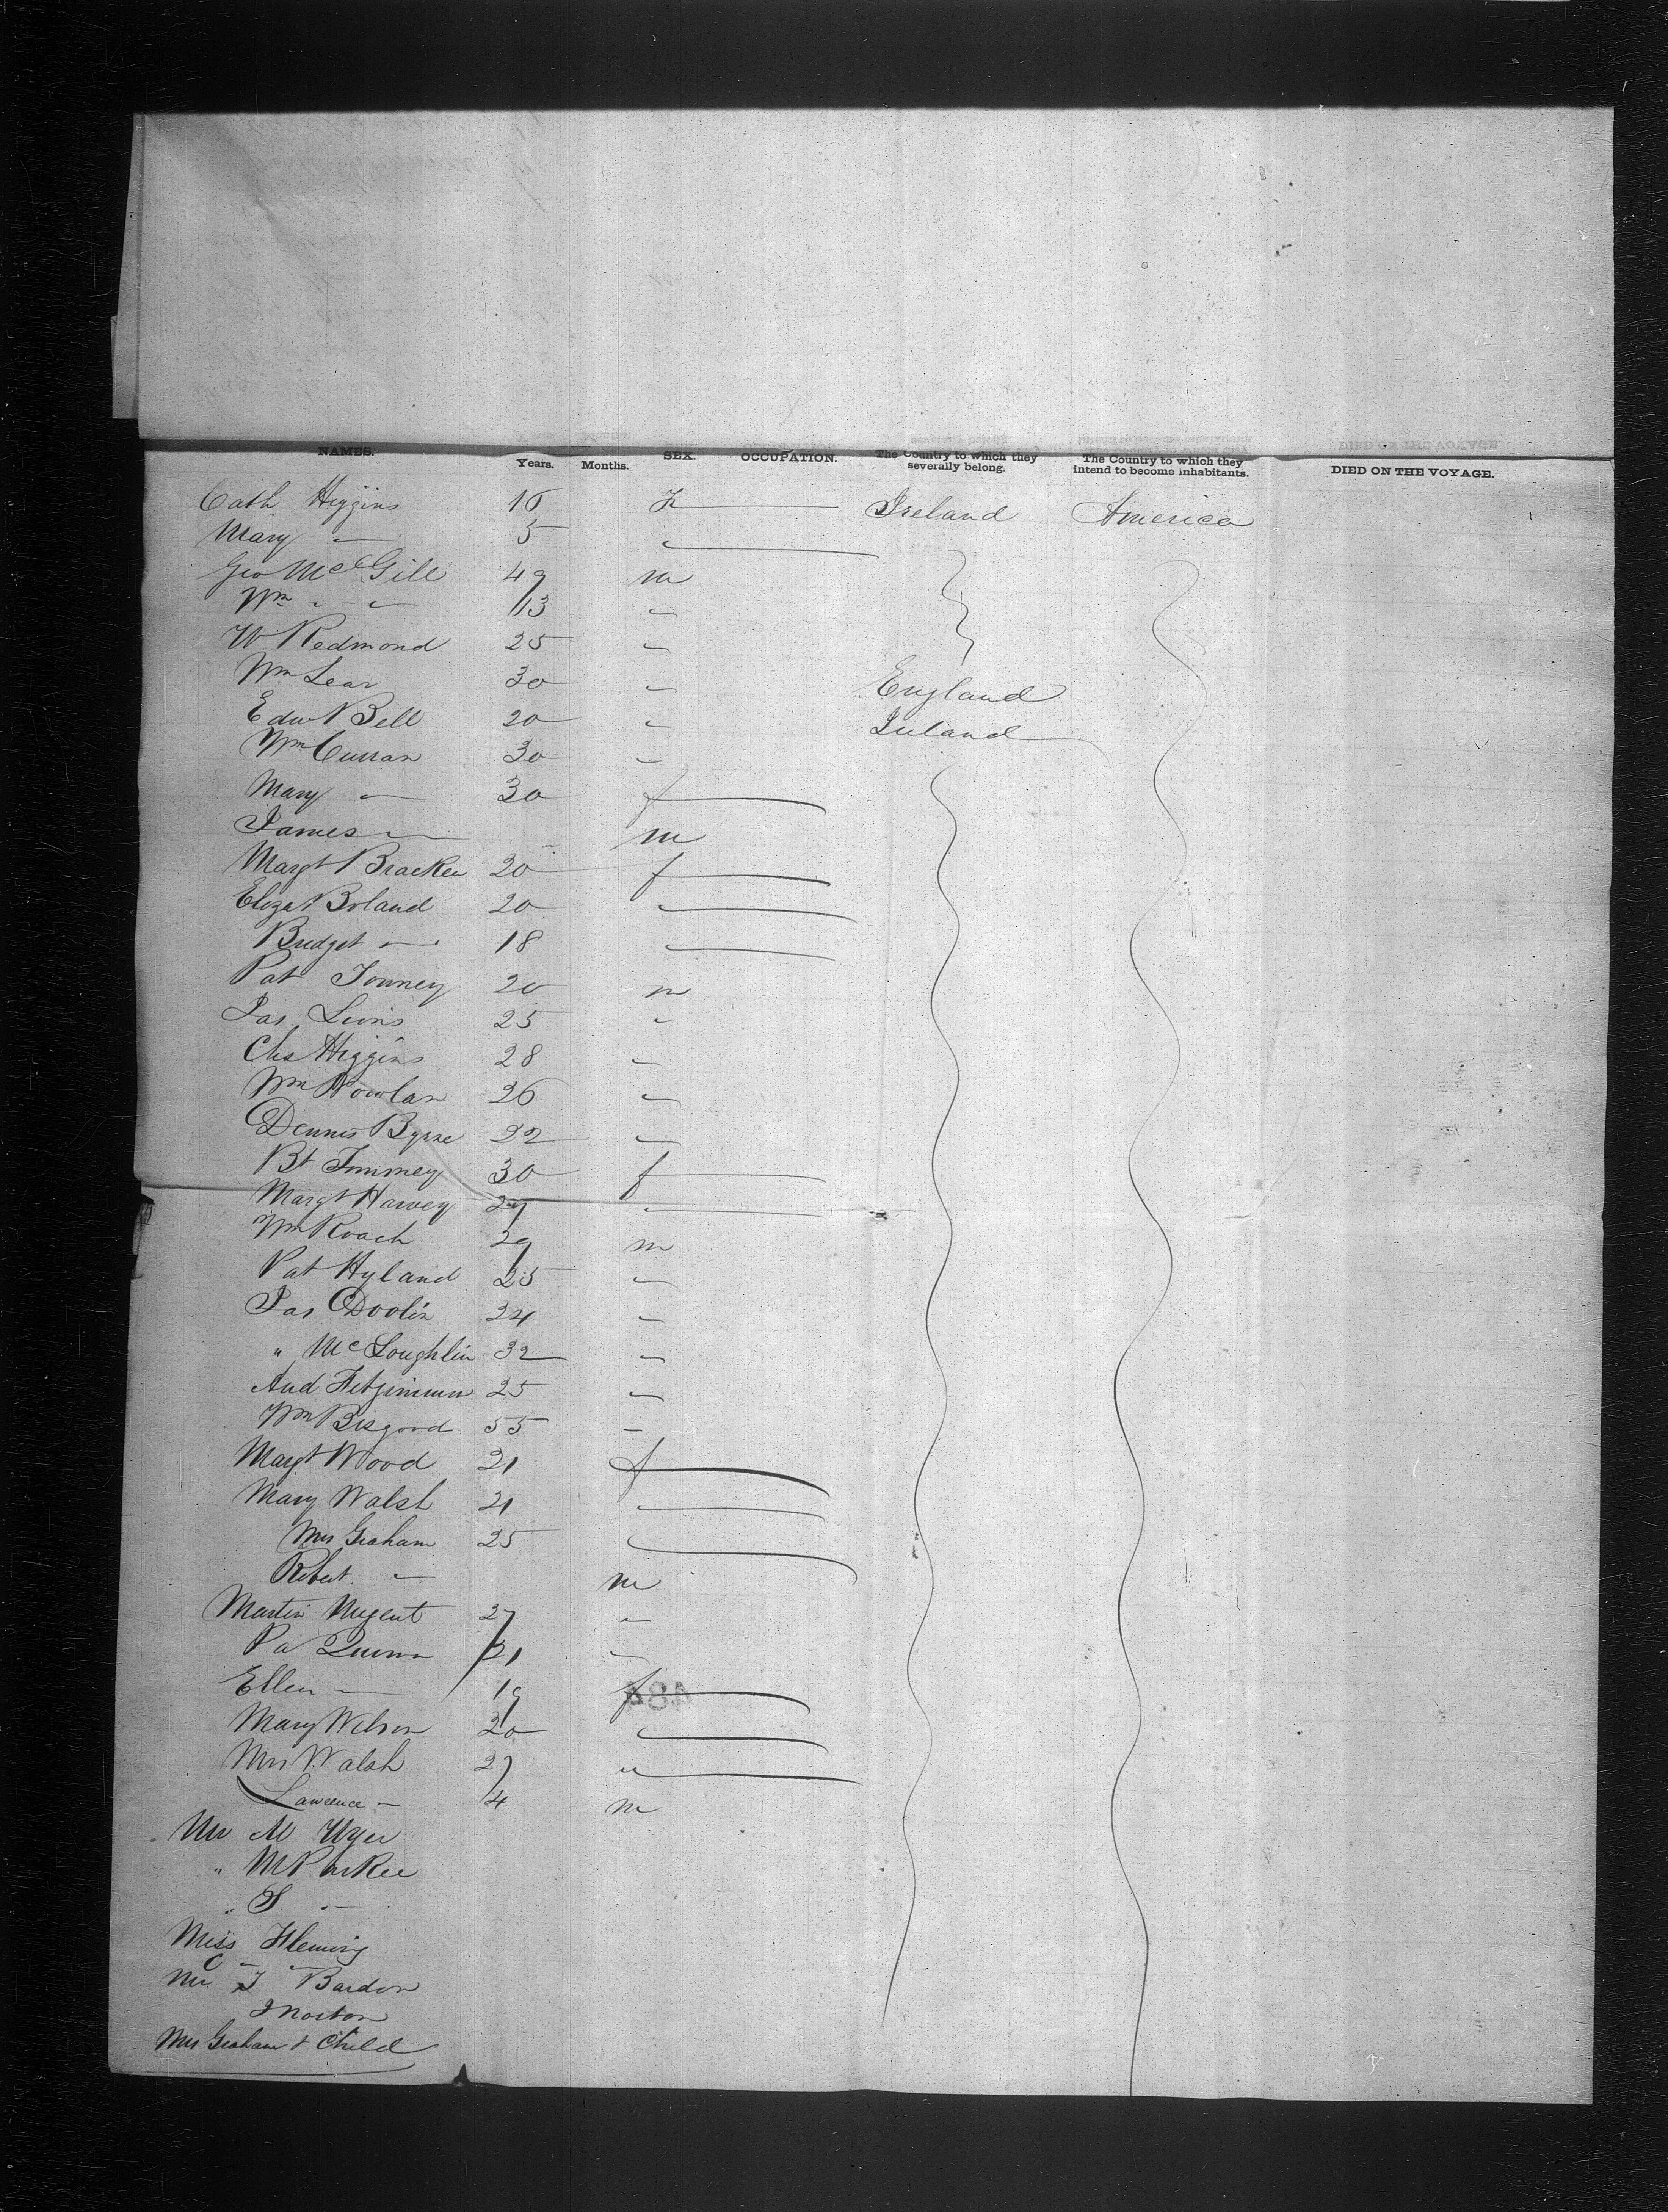 NAMES. Years. Months. SEX. OCCUPATION. The Country to which they severally belong. The Country to which they intend to become inhabitants. DIED ON THE VOYAGE.
Cath Higgins 16 F Ireland America
Mary — 5
Geo McGill 49 m
Wm " — 13 "
W Redmond 25 "
Wm Lear 30 " England
Edw Bell 20 " Ireland
Wm Curran 30 "
Mary — 30 f
James — m
Margt Bracken 20 f
Eliza Boland 20
Bridget — 18
Pat 20 m
Jas Lewis 25 "
Chs Higgins 28 "
Wm Nowlan 26 "
Dennis Byrne 22 "
Bt 30 f
Margt Harvey 27
Wm Roach 29 m
Pat Hyland 25 "
Jas Doolin 24 "
" McLoughlin 32 "
And 25 "
Wm Bisgood 55 "
Margt Wood 21 f
Mary Walsh 21
Mrs Graham 25
Robert — m
Martin Nugent 27 "
Pa Quinn 21 "
Ellen — 19 f
Mary Wilson 20
Mrs Walsh 27 "
Lawrence — 4 m
Mr M
" M
" S —
Miss Fleming
C — —
Mr J Bardon
Morton
Mrs Graham & Child